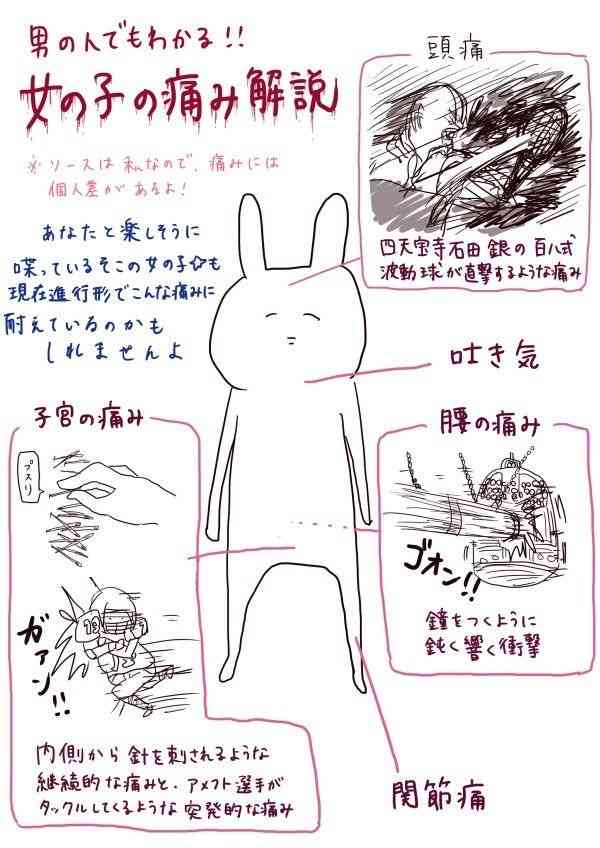 男の人でもわかる!!
女の子の痛み解説
※ソースは私なので、痛みには
個人差があるよ!
あなたと楽しそうに
喋っているそこの女の子☆も
現在進行形でこんな痛みに
耐えているのかも
しれませんよ
頭痛
四天宝寺石田銀の百八式
波動球が直撃するような痛み
吐き気
子宮の痛み
プスリ
ガァン!!
13
内側から針を刺されるような
継続的な痛みと、アメフト選手が
タックルしてくるような突発的な痛み
腰の痛み
ゴオン!!
鐘をつくように
鈍く響く衝撃
関節痛